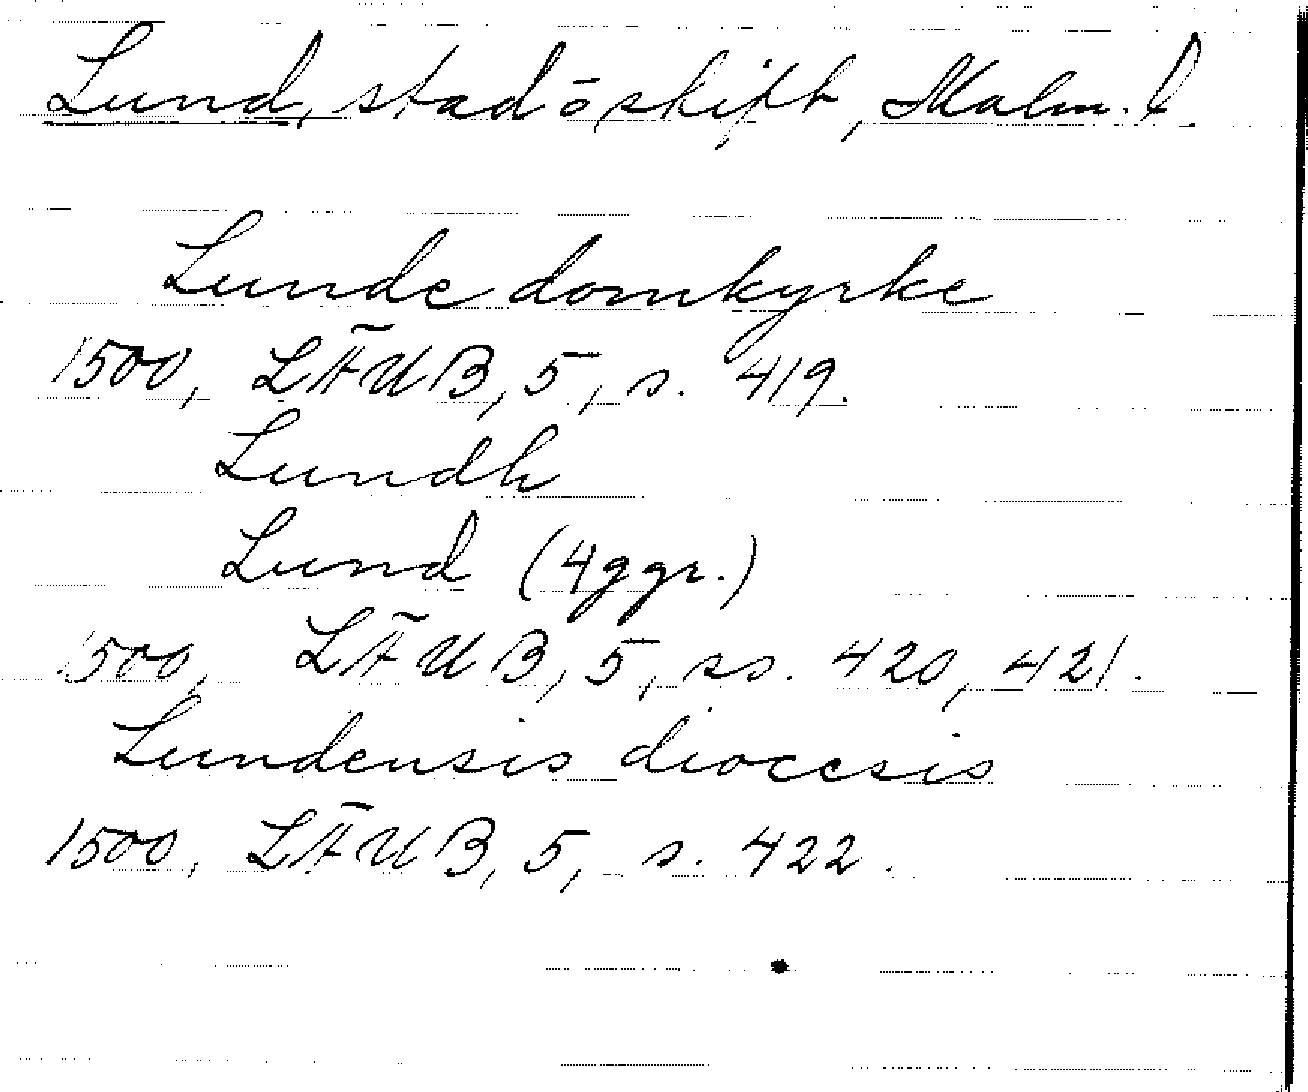 Lund, stad o skift, Malm. l.
Lunde domkyrke
1500, LÄUB, 5, s. 419.
Lundh
Lund (4ggr.)
1500, LÄUB, 5, ss. 420, 421.
Lundensis diocesis
1500, LÄUB, 5, s. 422.